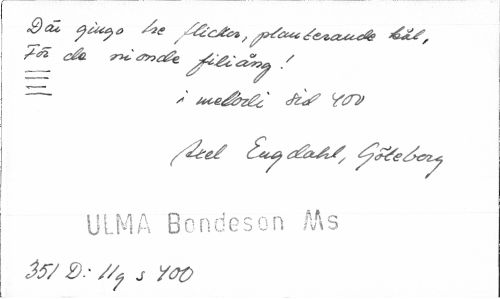 Där gingo tre flickor, planterande kål,
För de nionde filiång!
i melodi sid 400
Axel Engdahl, Göteborg
ULMA Bondeson Ms
351 D: 11q s 400